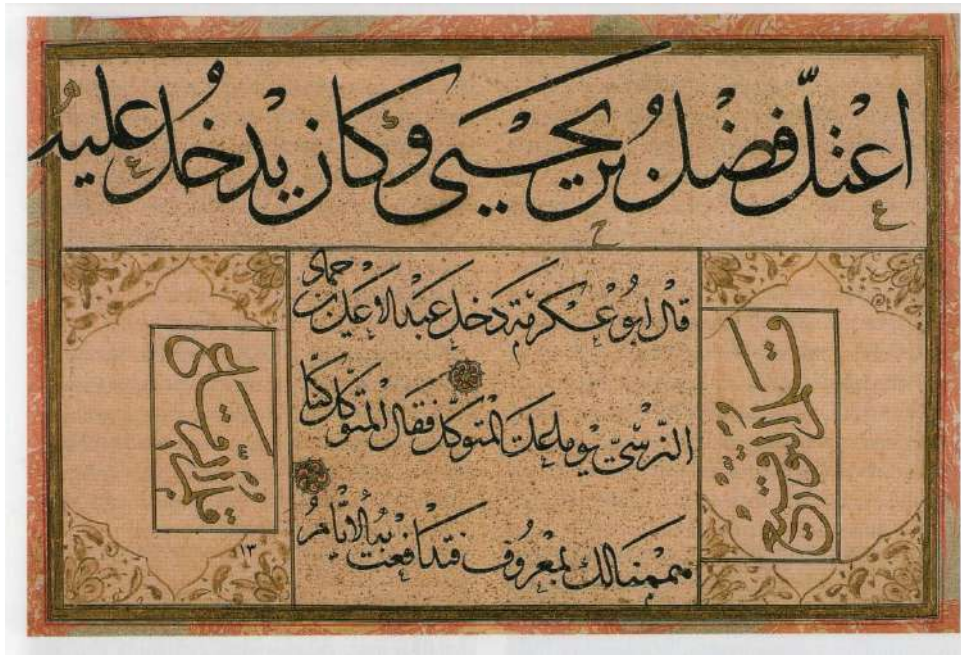 اعتلّ فضل بن يحيى وكان يدخل عليه
قال ابو عكرمة دخل عبد الاعلى بن حماد
النرسي يوما على المتوكل فقال المتوكل كنا
هممنا لك بمعروف فتدافعت به الايام
قلم الرقاع
١٣